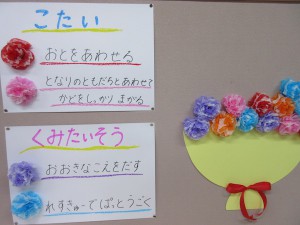 こたい
おとをあわせる
となりのともだちとあわせて
かどをしっかりまがる
くみたいそう
おおきなこえをだす
れすきゅーでぱっとうごく